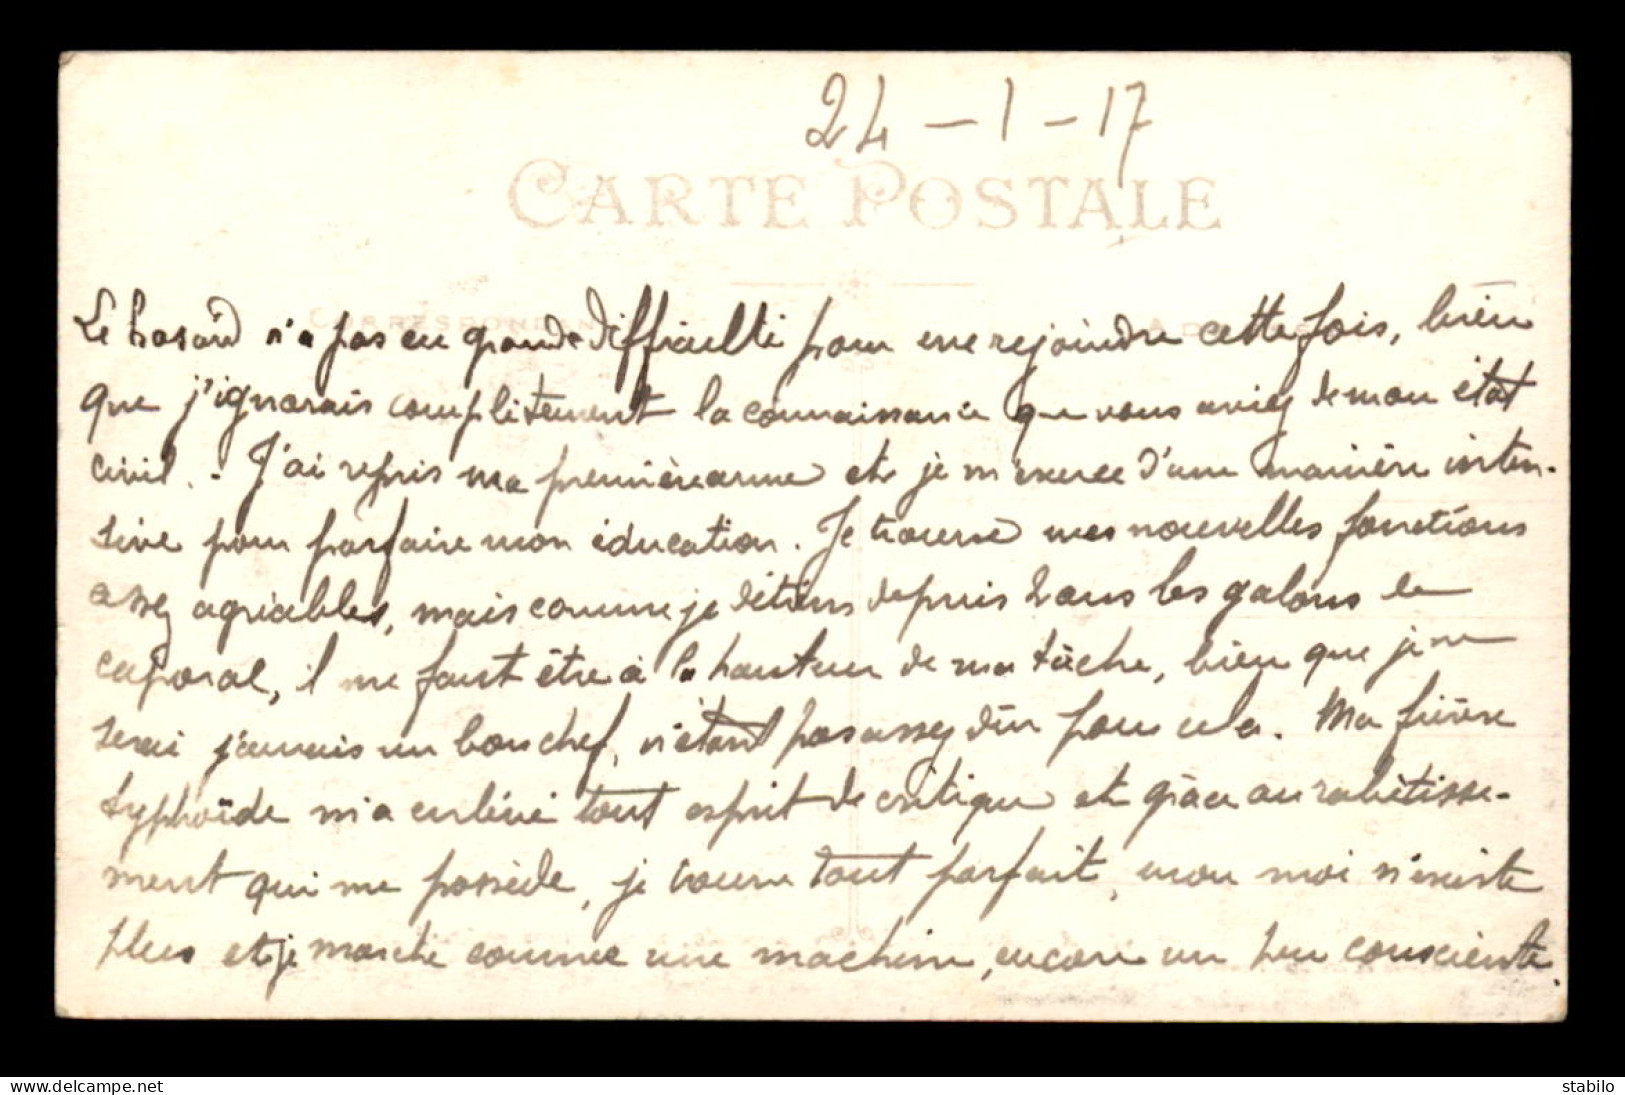 24 - 1 - 17
CARTE POSTALE
CORRESPONDAN
Le hasard n'a pas eu grande difficulté pour me rejoindre cette fois, bien
que j'ignorais complètement la connaissance que vous aviez de mon état
civil. - J'ai repris ma première arme et je m'exerce d'une manière inten-
sive pour parfaire mon éducation. Je trouve mes nouvelles fonctions
assez agréables, mais comme je détiens depuis 2 ans les galons de
caporal, il me faut être à la hauteur de ma tâche, bien que je ne
serai jamais un bon chef, n'étant pas assez dur pour cela. Ma fièvre
typhoïde m'a enlevé tout esprit de critique et grâce au rabêtisse-
ment qui me possède, je trouve tout parfait, mon moi n'existe
plus et je marche comme une machine, encore un peu consciente.
© delcampe.net
stabilo